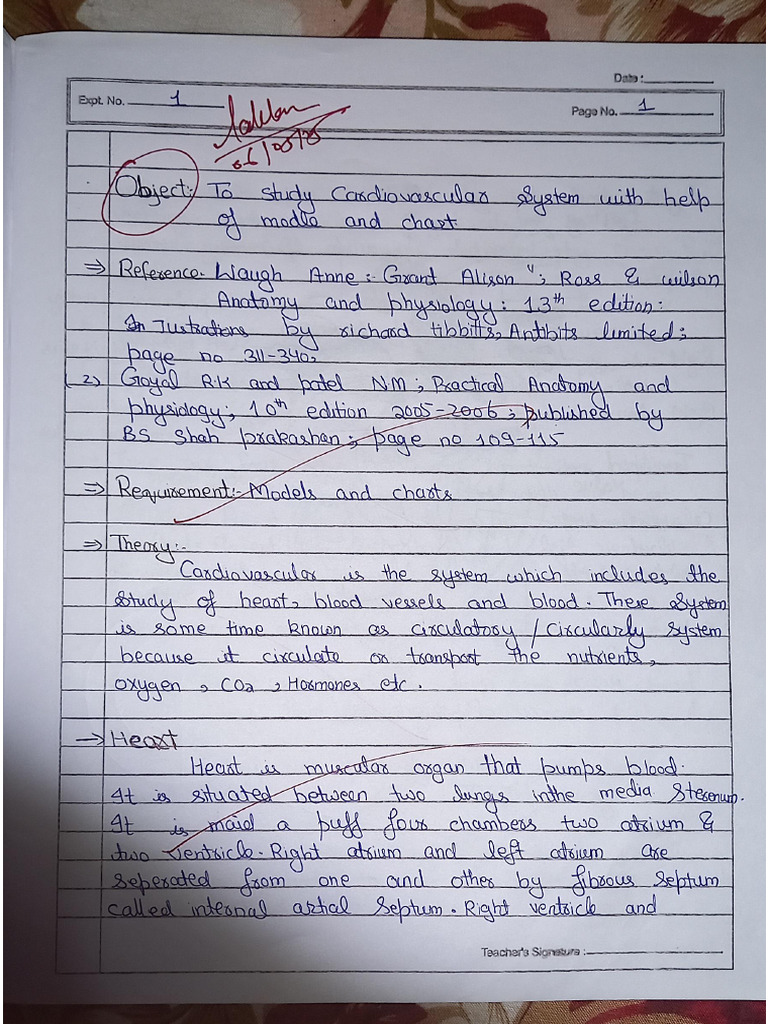 Date :
Expt. No. 1
Page No. 1
Object:- To study Cardiovascular System with help
of modle and chart.
⇒ Reference- Waugh Anne :- Grant Alison"; Ross & wilson
Anatomy and physiology : 13th edition :
by richard tibbitts, Antibits limited ;
page no 311-340,
2) Goyal R.K and patel NM ; Practical Anatomy and
physiology; 10th edition 2005-2006 ; published by
BS Shah prakashan ; page no 109-115
⇒ Requirement:- Models and charts
⇒ Theory:-
Cardiovascular is the system which includes the
study of heart, blood vessels and blood. These System
is some time known as circulatory / Circularly system
because it circulate or transport the nutrients,
oxygen , CO2 , Hormones etc .
→ Heart
Heart is muscular organ that pumps blood.
It is situated between two lungs inthe media Sterenum.
It is maid a puff four chambers two atrium &
two ventricle. Right atrium and left atrium are
seperated from one and other by fibrous septum
called internal artial septum. Right ventricle and
Teacher's Signature :